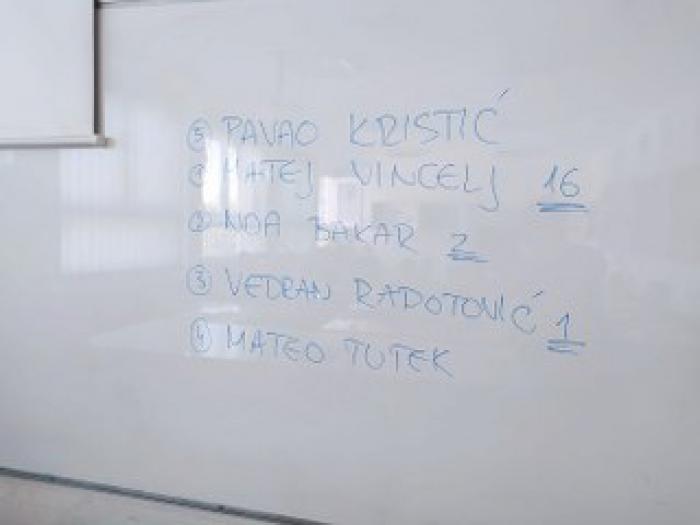 ⑤ PAVAO KRISTIĆ
① MATEJ VINCELJ 16
② NOA BAKAR 2
③ VEDRAN RADOTOVIĆ 1
④ MATEO TUTEK